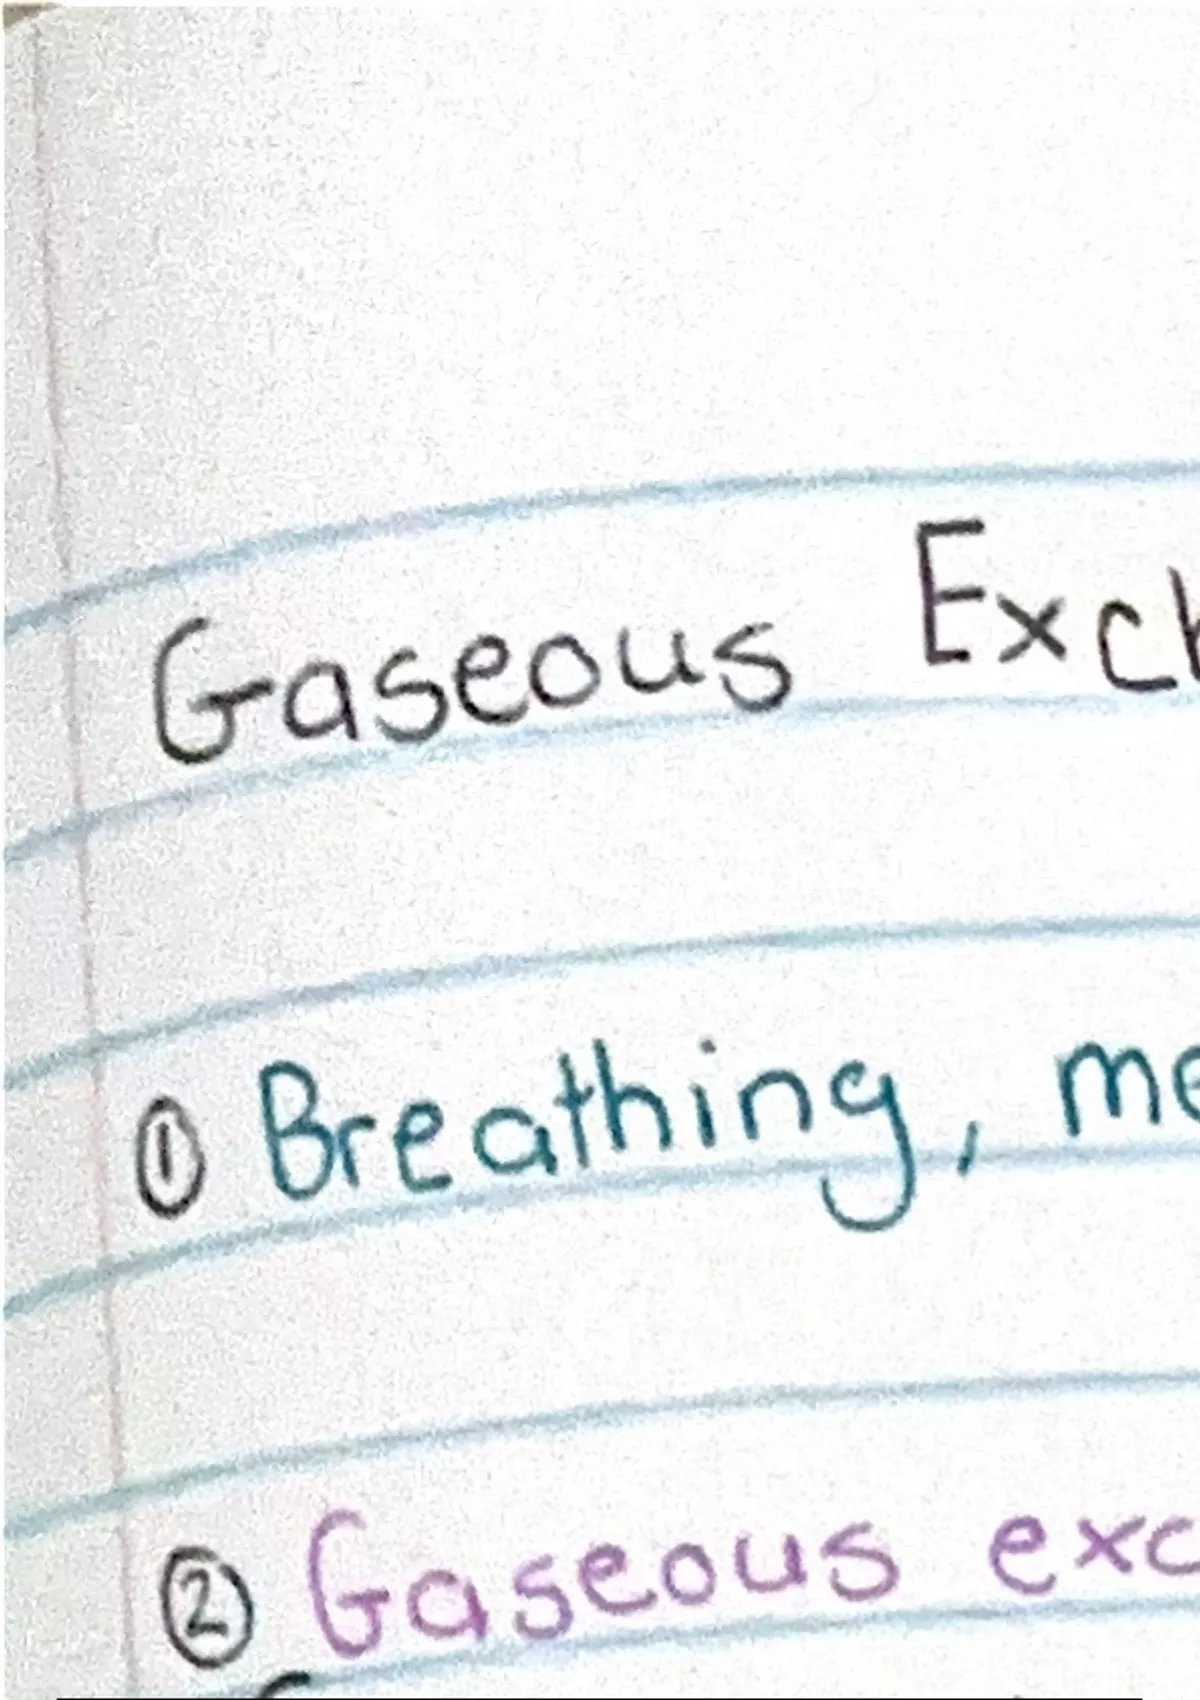 Gaseous Exch
① Breathing, me
② Gaseous exc